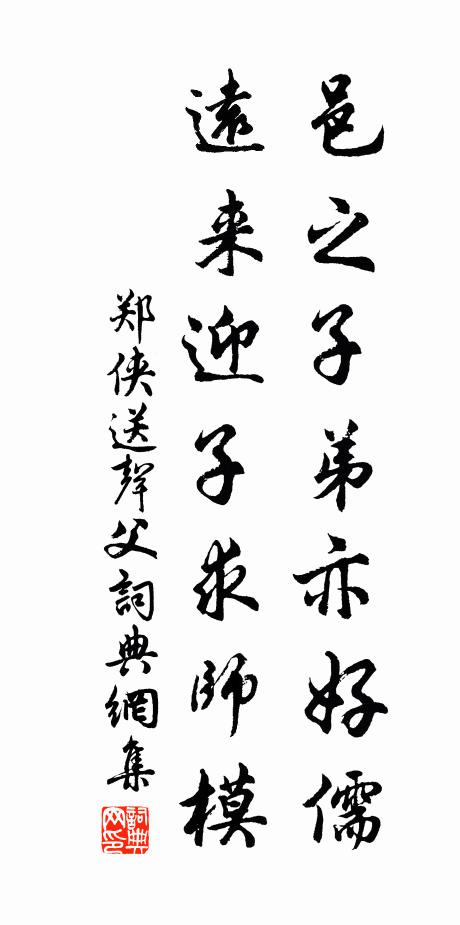 邑之子弟亦好儒
遠来迎子求師模
郑侠送聲父詞典網集
詞典网印